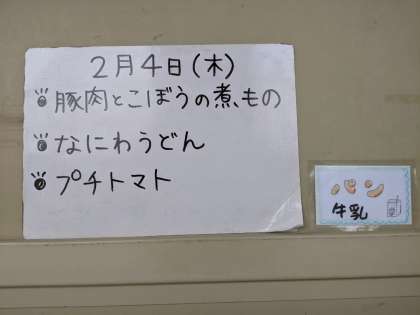 2月4日(木)
豚肉とこぼうの煮もの
なにわうどん
プチトマト
パン
牛乳